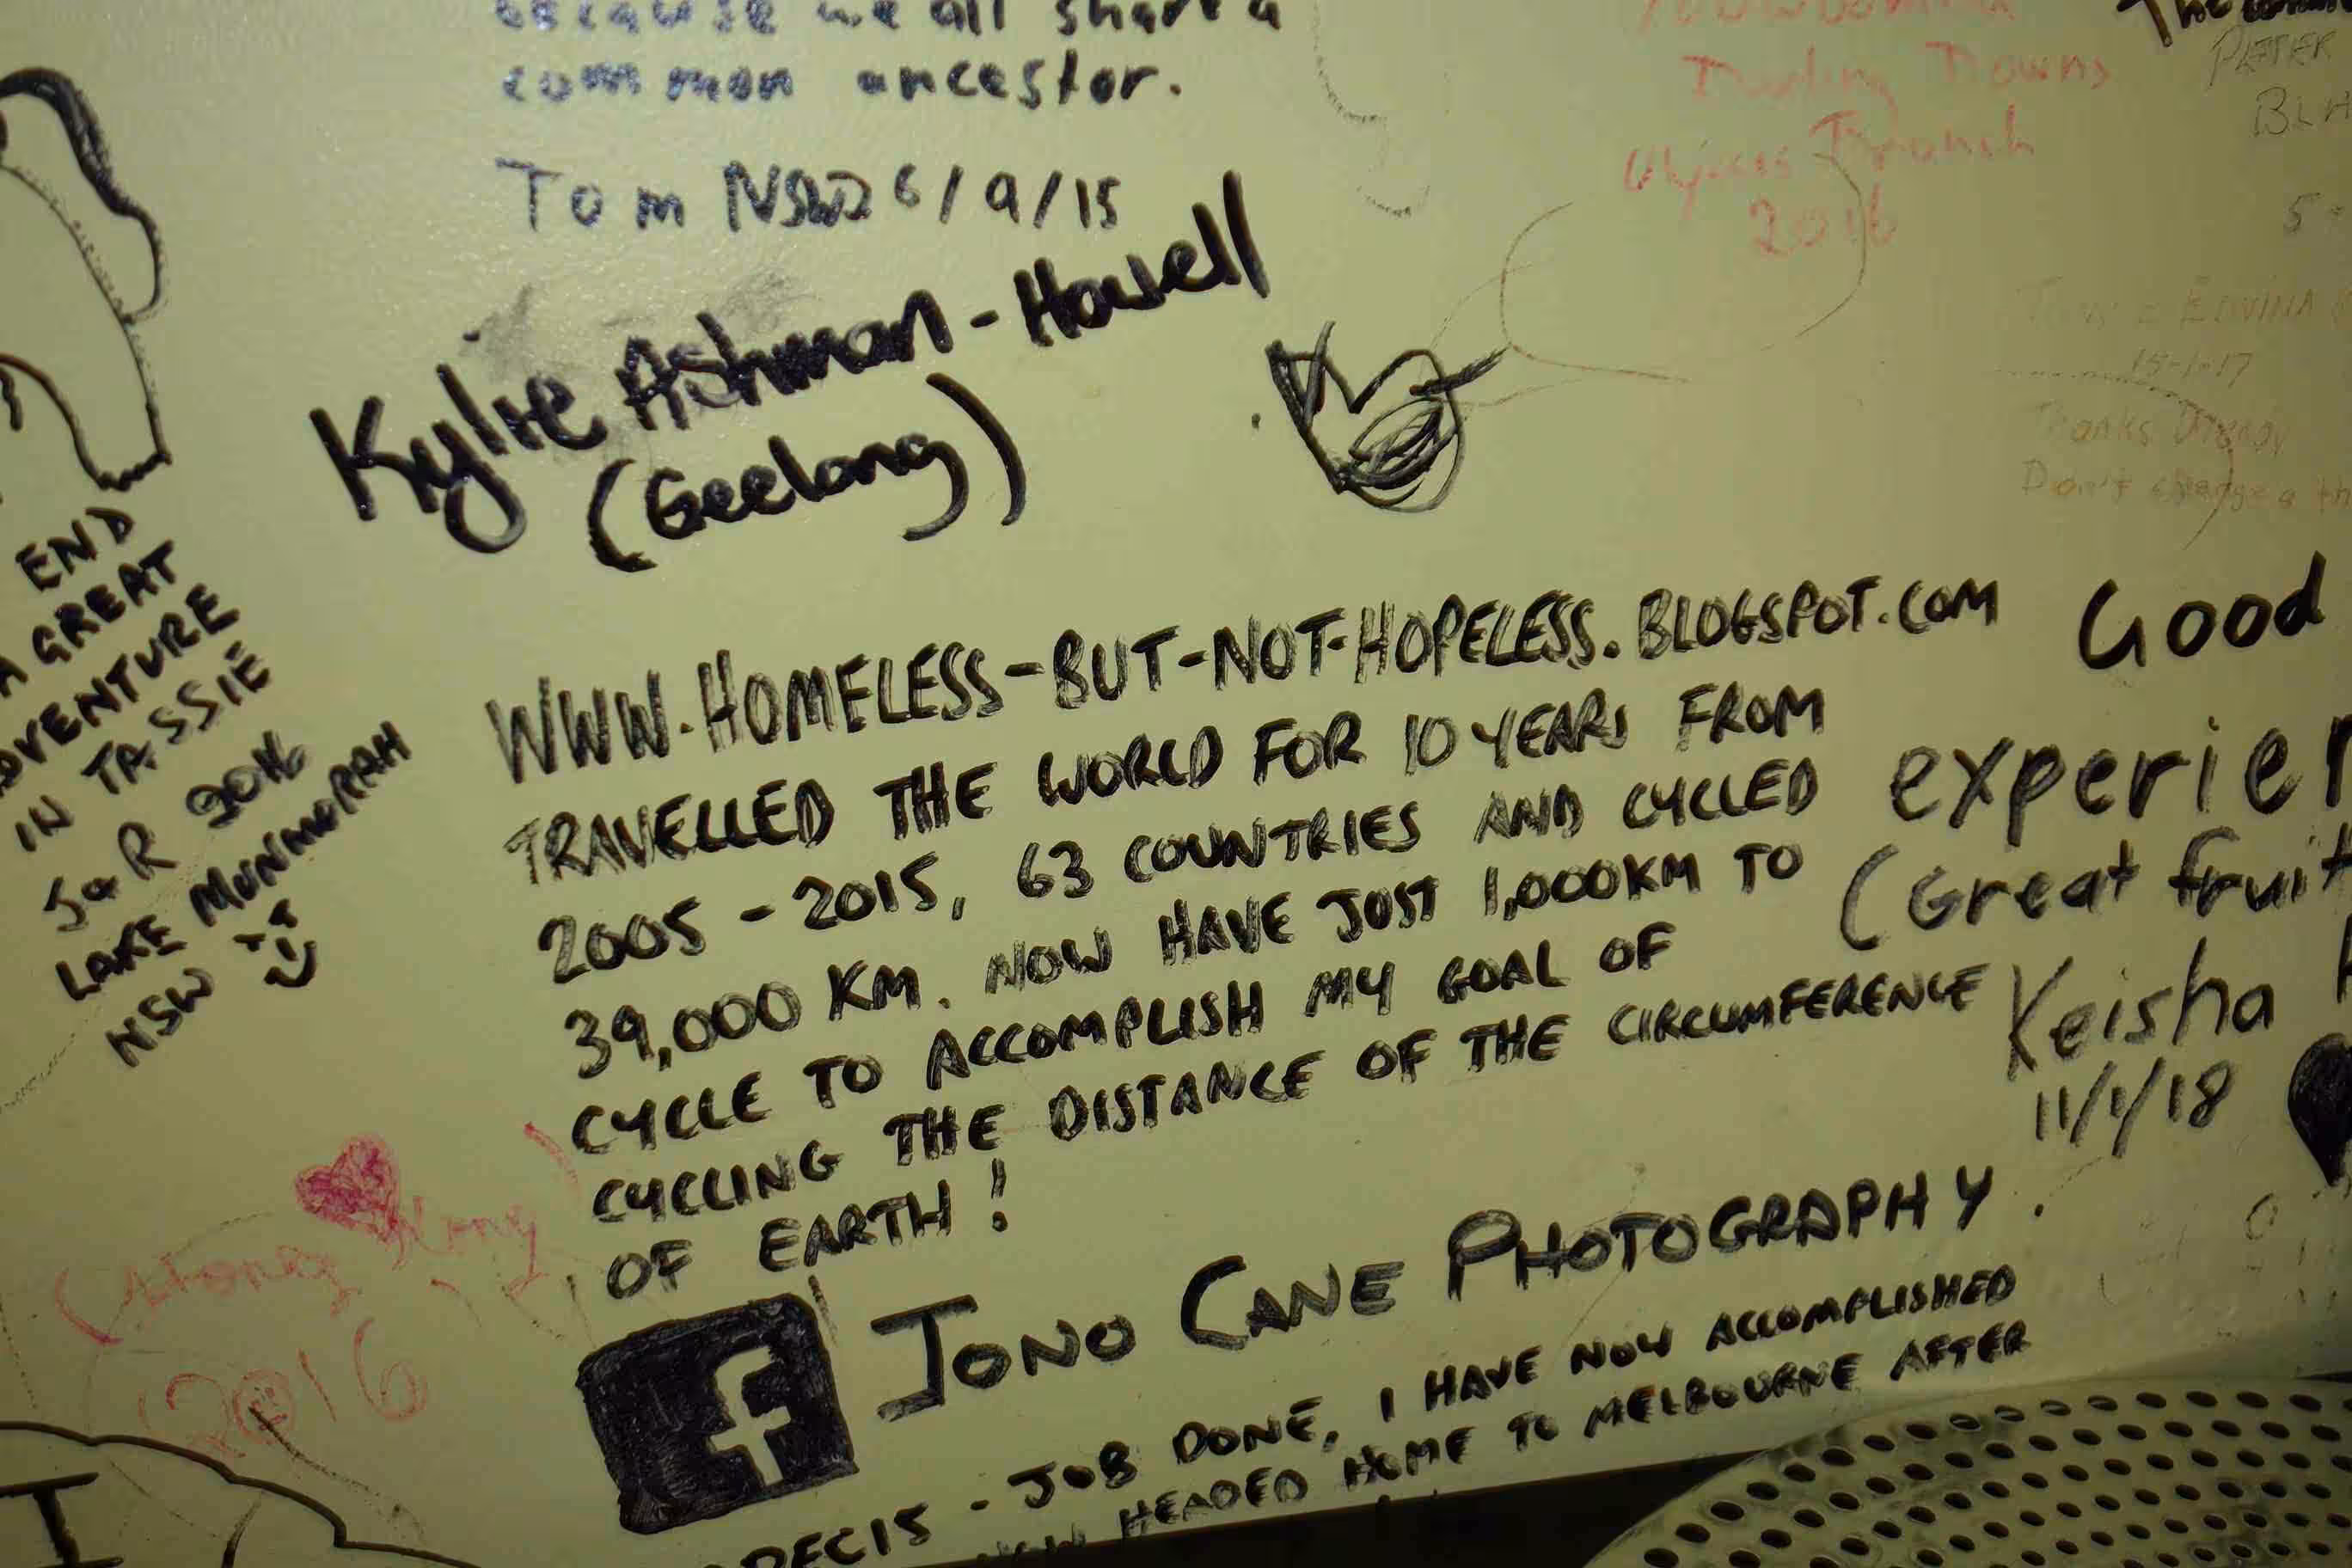 because we all share a
common ancestor.
Tom NSW 26/9/15
Darling Downs
Ulysses Branch
2016
PETER
Kylie Ashman-Howell
(Geelong)
EDWINA
15-1-17
Thanks
Don't change a
END
A GREAT
ADVENTURE
IN TASSIE
J&R 2016
LAKE MUNMORAH
NSW
WWW.HOMELESS-BUT-NOT-HOPELESS.BLOGSPOT.COM
TRAVELLED THE WORLD FOR 10 YEARS FROM
2005 - 2015, 63 COUNTRIES AND CYCLED
39,000 KM. NOW HAVE JUST 1,000KM TO
CYCLE TO ACCOMPLISH MY GOAL OF
CYCLING THE DISTANCE OF THE CIRCUMFERENCE
OF EARTH!
f JONO CANE PHOTOGRAPHY.
DEC15 - JOB DONE, I HAVE NOW ACCOMPLISHED
HEADED HOME TO MELBOURNE AFTER
Good
(Great fruit
Keisha
11/1/18
2016
I